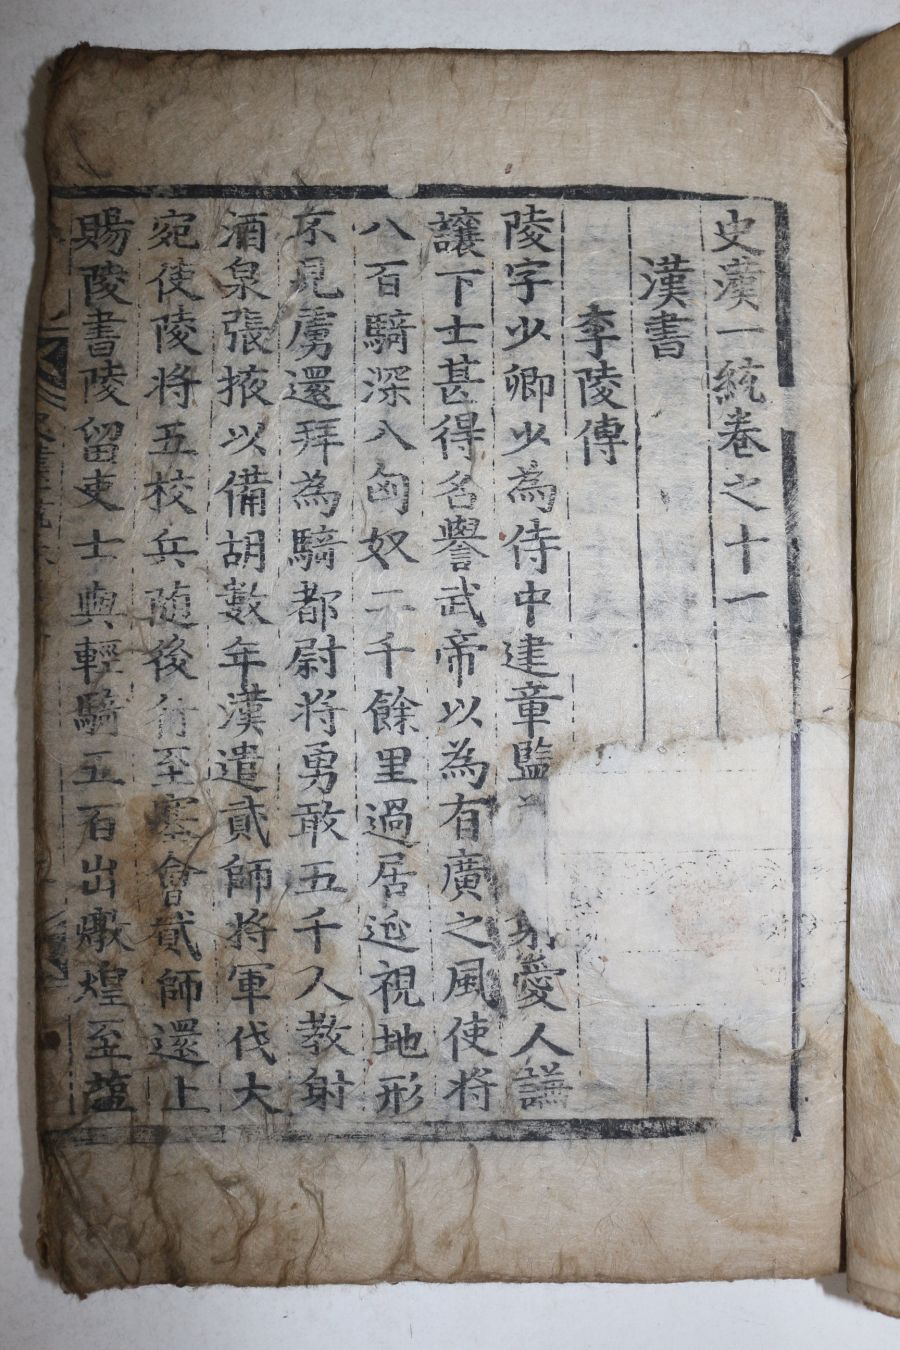 史漢一統卷之十一
漢書
李陵傳
陵字少卿少為侍中建章監射愛人謙
讓下士甚得名譽武帝以為有廣之風使將
八百騎深入匈奴二千餘里過居延視地形
不見虜還拜為騎都尉將勇敢五千人教射
酒泉張掖以備胡數年漢遣貳師將軍伐大
宛使陵將五校兵隨後行至塞會貳師還上
賜陵書陵留吏士與輕騎五百出燉煌至塩